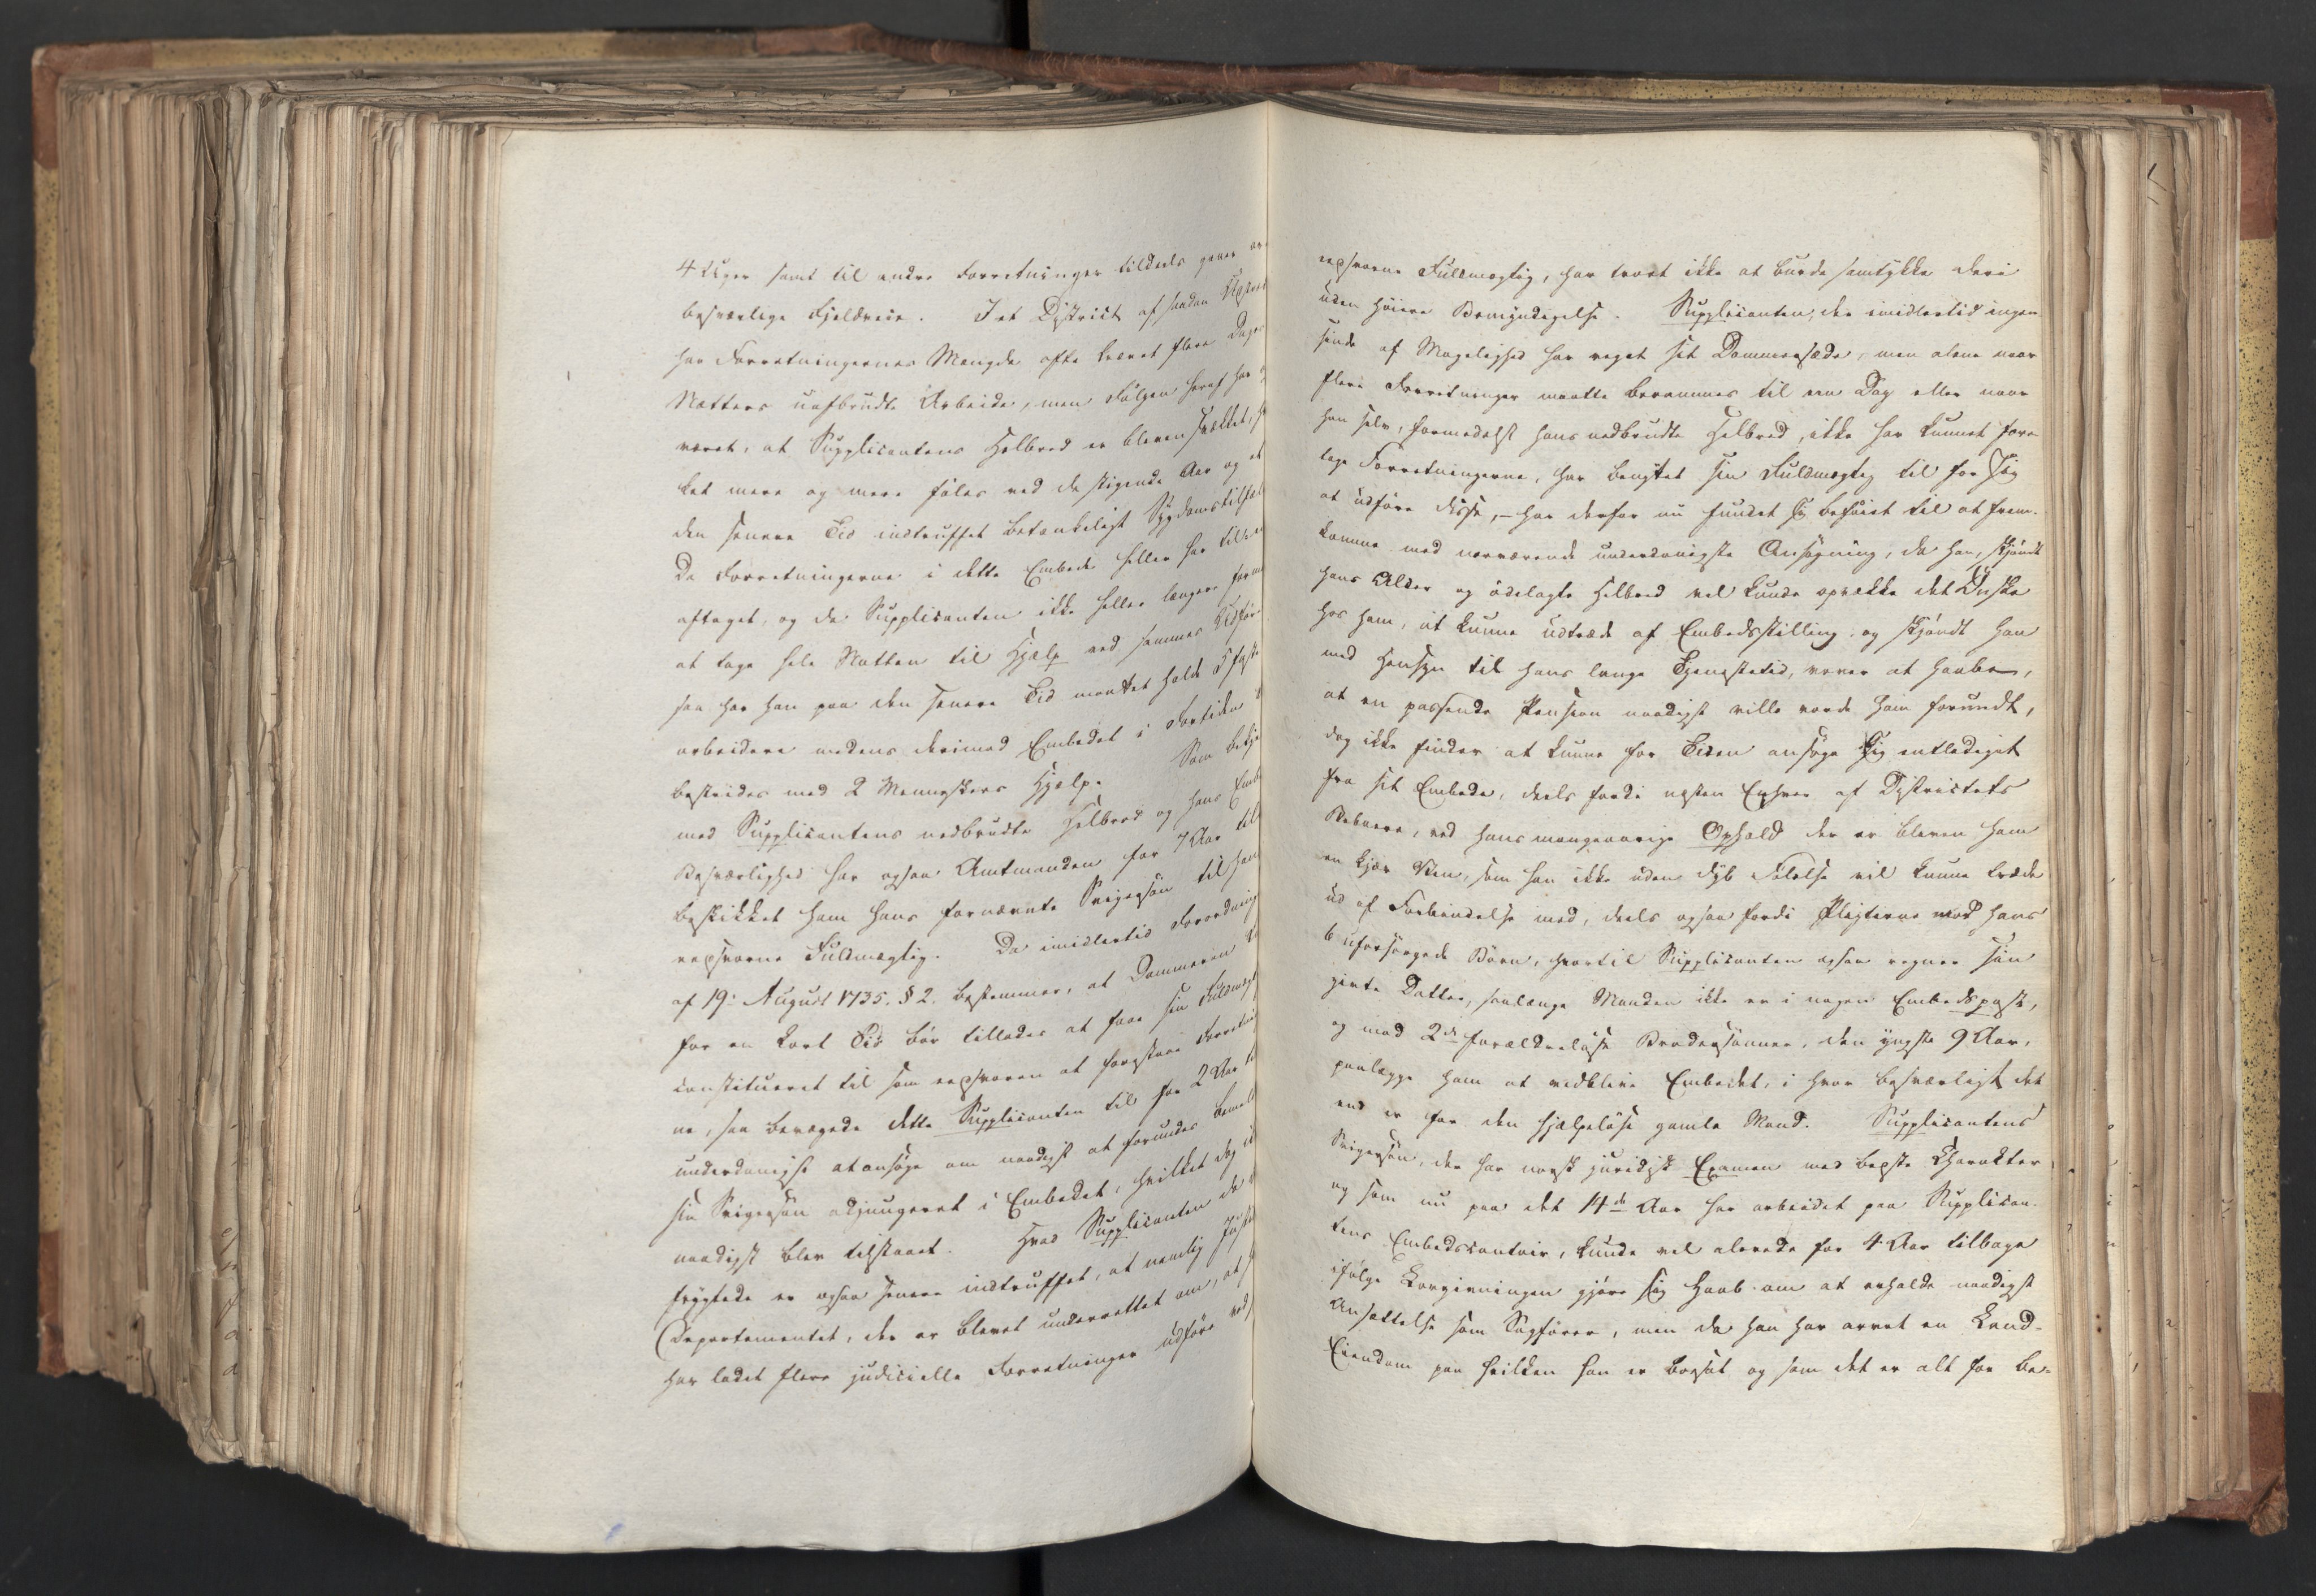 4 Uger samt til andre Forretninger tildeels gaaer over
besværlige Fjeldveie. I et District af saadan
har Forretningernes Mængde ofte krævet flere Dages
Nætters uafbrudte Arbeide, men Følgen heraf har
været, at Supplicantens Helbred er bleven svækket,
ket mere og mere føles ved de stigende Aar og et
den senere Tid indtruffet betænkeligt Sygdomstilfæl
Da Forretningerne i dette Embede heller har
aftaget, og da Supplicanten ikke heller længere
at tage hele Natten til Hjælp ved sammes Udfør
saa har han paa den senere Tid maattet holde 3 faste
arbeidere medens derimod Embedet i Fortiden
bestrides med 2 Menneskers Hjælp. Som bekje
med Supplicantens nedbrudte Helbred og hans Embe
Besværlighed har ogsaa Amtmanden for 7 Aar til
beskikket ham hans fornævnte Svigersøn til ham
eedsvorne Fuldmægtig. Da imidlertid Forordning
af 19. August 1735. § 2. bestemmer, at Dommeren
for en kort Tid bør tillades at faae sin Fuldmægt
constitueret til som eedsvoren at forestaae Forretni
ne, saa bevægede dette Supplicanten til for 2 Aar
underdanigst at ansøge om naadigst at forundes
sin Svigersøn adjungeret i Embedet, hvilket dog
naadigst blev tilstaaet. Hvad Supplicanten da
frygtede er ogsaa senere indtruffet, at nemlig Justi
Departementet, der er blevet underrettet om, at
har ladet flere judicielle Forretninger udføre ved
eedsvorne Fuldmægtig, har troet ikke at burde samtykke deri
uden høiere Bemyndigelse. Supplicanten, der imidlertid ingen
sinde af Magelighed har veget sit Dommersæde, men alene naar
flere Forretninger maatte berammes til een Dag eller naar
han selv, formedelst hans nedbrudte Helbred, ikke har kunnet fore
tage Forretningerne, har benyttet sin Fuldmægtig til for sig
at udføre disse, – har derfor nu fundet sig beføiet til at frem-
komme med nærværende underdanigste Ansøgning, da han, skjøndt
hans Alder og ødelagte Helbred vel kunde opvække det Ønske
hos ham, at kunne udtræde af Embedsstilling; og skjøndt han
med Hensyn til hans lange Tjenestetid, vover at haabe,
at en passende Pension naadigst ville vorde ham forundt,
dog ikke finder at kunne for Tiden ansøge sig entlediget
fra sit Embede, deels fordi næsten Enhver af Districtets
Beboere, ved hans mangeaarige Ophold der er bleven ham
en kjær Ven, som han ikke uden dyb Følelse vil kunne træde
ud af Forbindelse med, deels ogsaa fordi Pligterne mod hans
6 uforsørgede Børn, hvortil Supplicanten ogsaa regner sin
givte Datter, saalænge Manden ikke er i nogen Embedspost,
og mod 2de forældreløse Brodersønner, den yngste 9 Aar,
paalægge ham at vedblive Embedet, i hvor besværligt det
end er for den hjælpeløse gamle Mand. Supplicantens
Svigersøn, der har norsk juridisk Examen med bedste Charakter
og som nu paa det 14de Aar har arbeidet paa Supplican-
tens Embedscontoir, kunde vel allerede for 4 Aar tilbage
ifølge Lovgivningen gjøre sig Haab om at erholde naadigst
Ansættelse som Sagfører, men da han har arvet en Land-
Eiendom paa hvilken han er bosat og som det er alt for be-